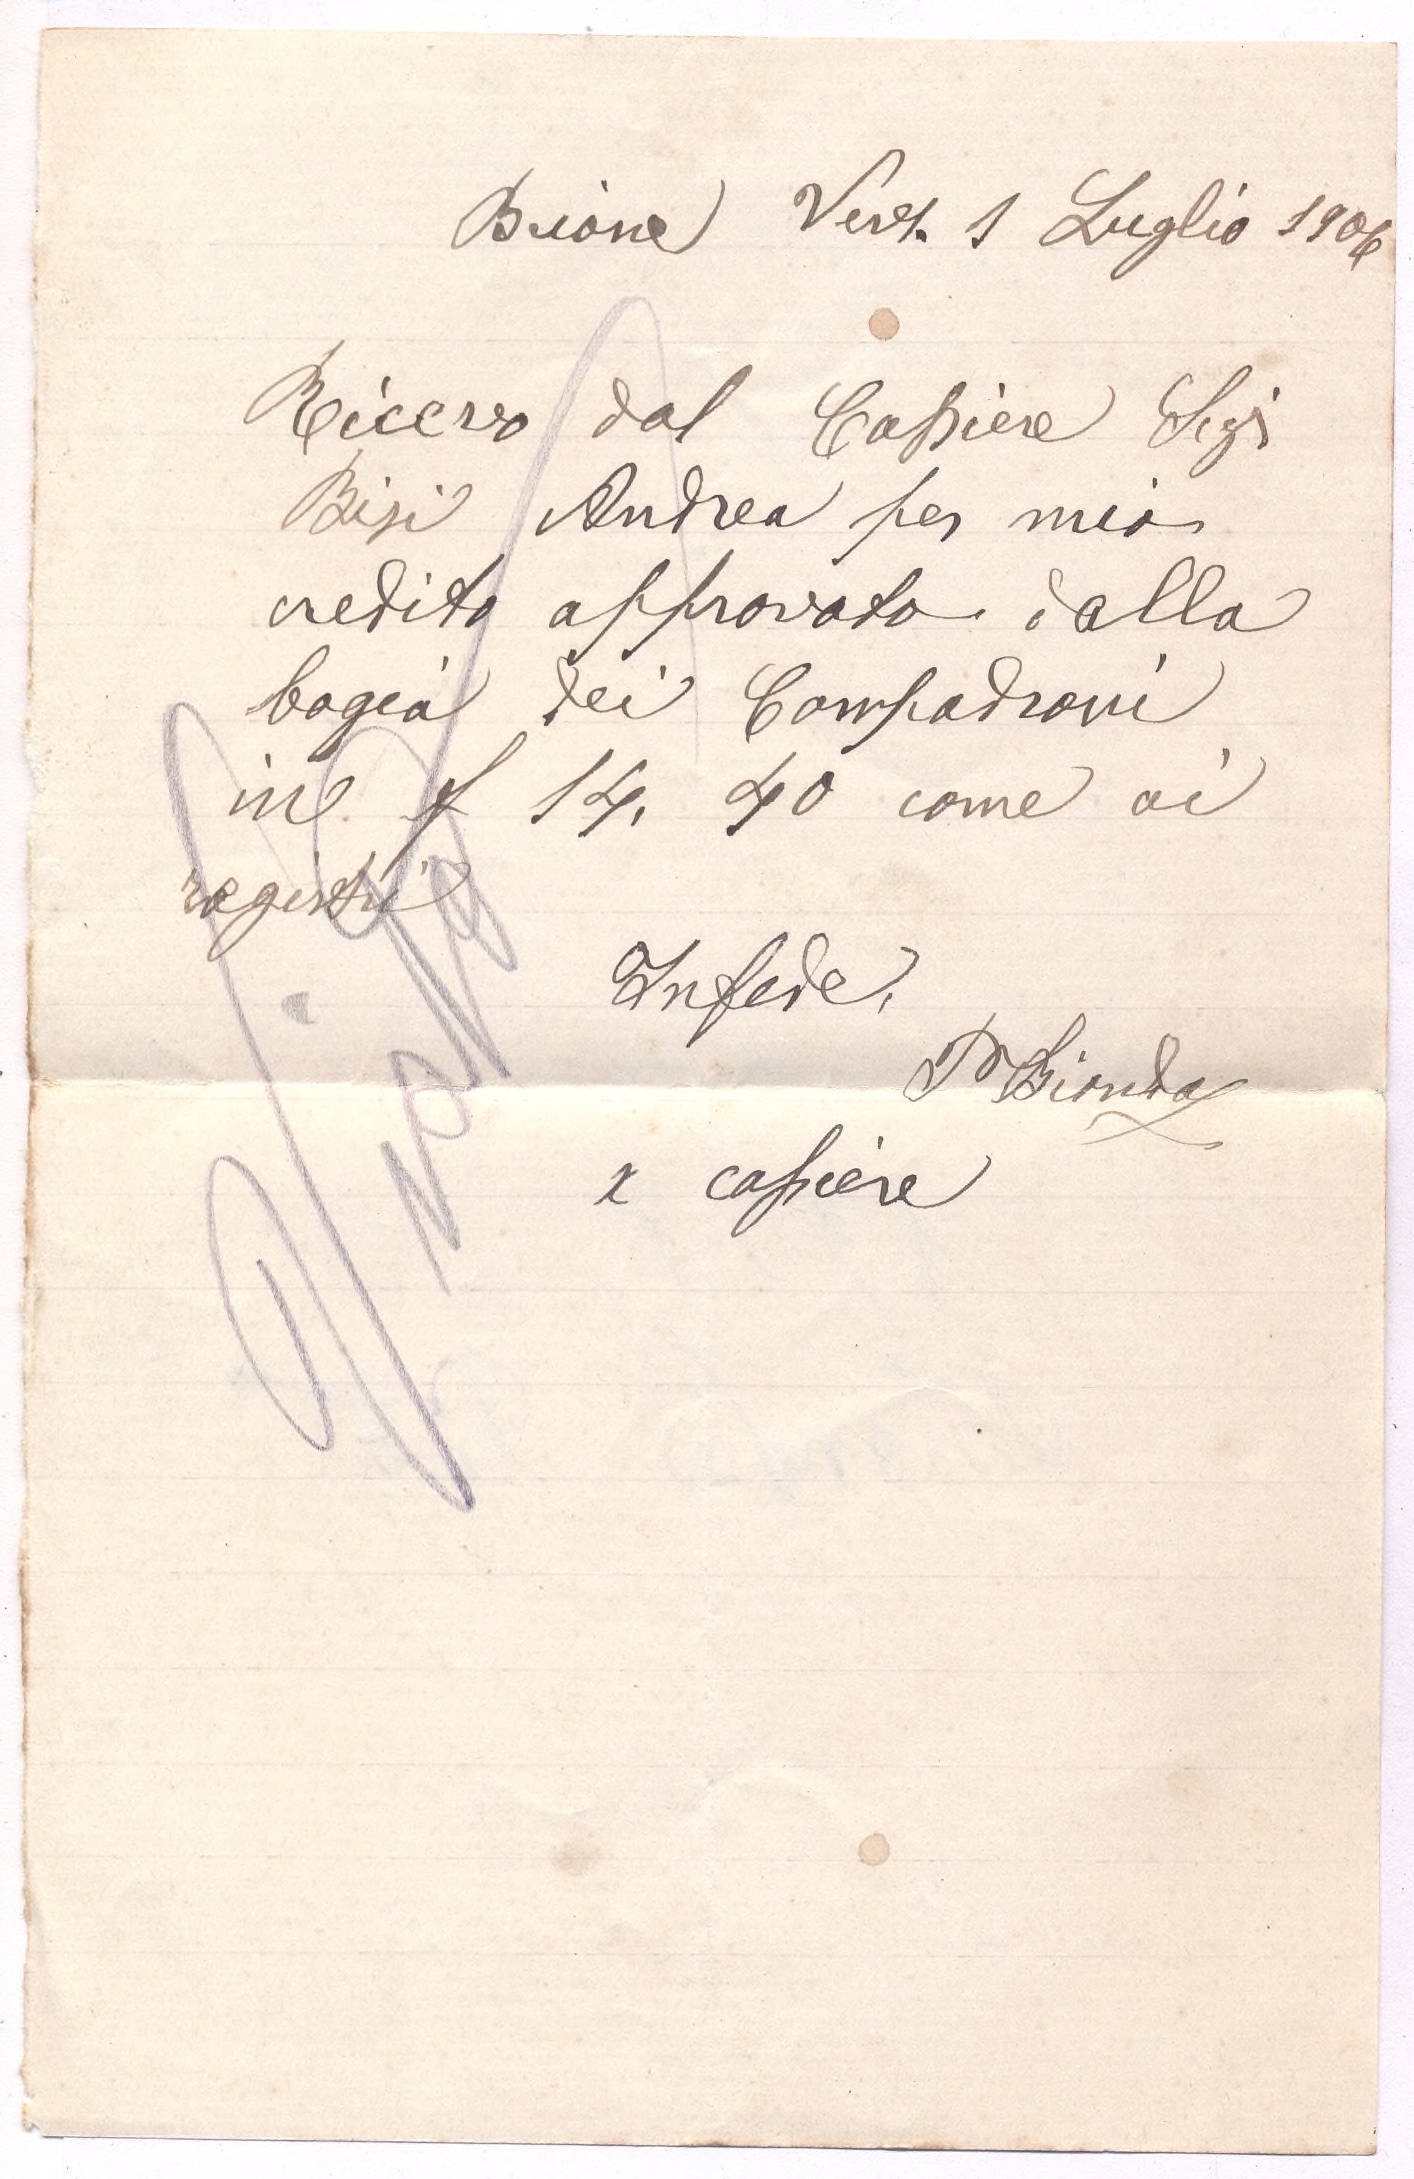 Brione Verz. 1 Luglio 1906
Ricevo dal Cassiere Sigr
Bisi Andrea per mio
credito approvato dalla
bogia dei Compadroni
in f 14, 40 come ai
registri
Infede,
P Bionda
x cassiere
Vista